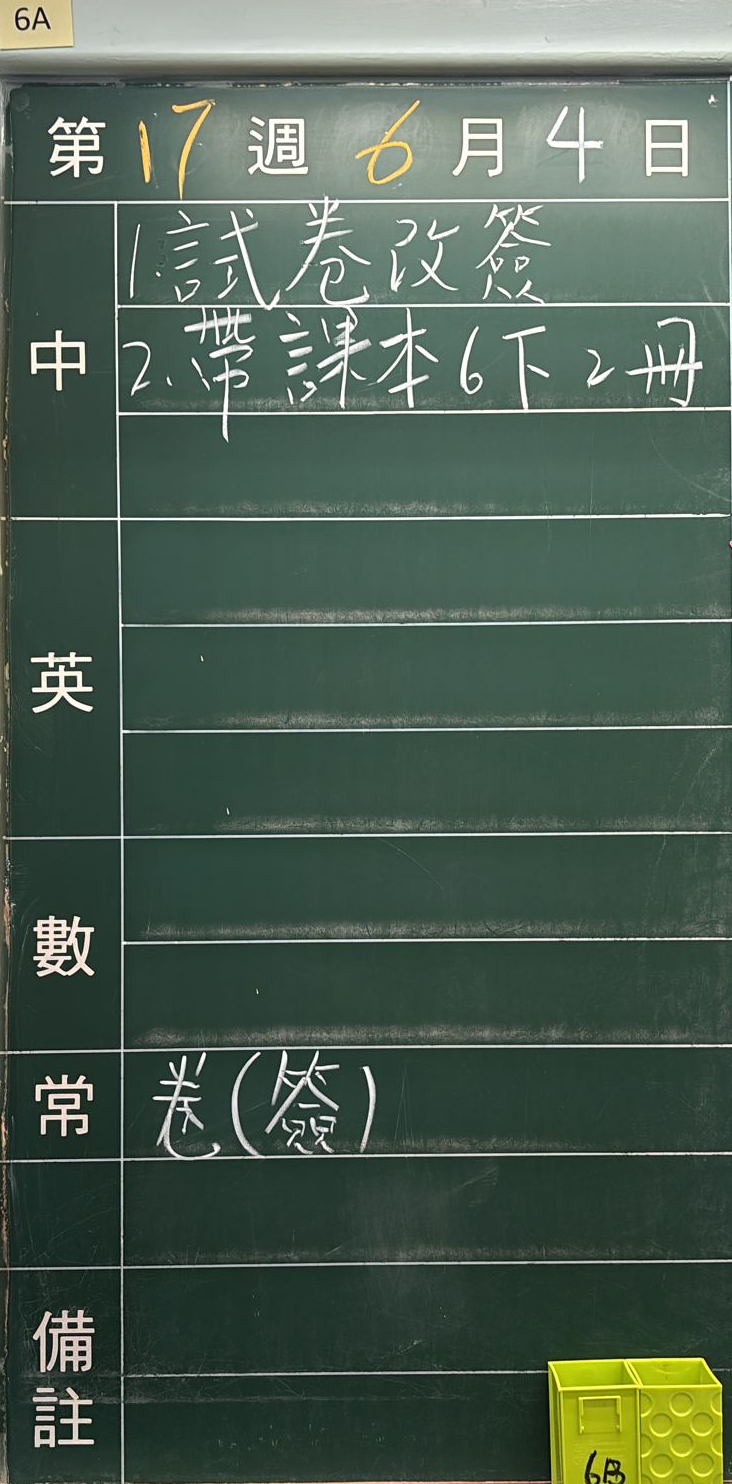 6A
第 17 週 6 月 4 日
中
1.試卷改簽
2.帶課本6下2冊
英
數
常
卷(簽)
備註
6B